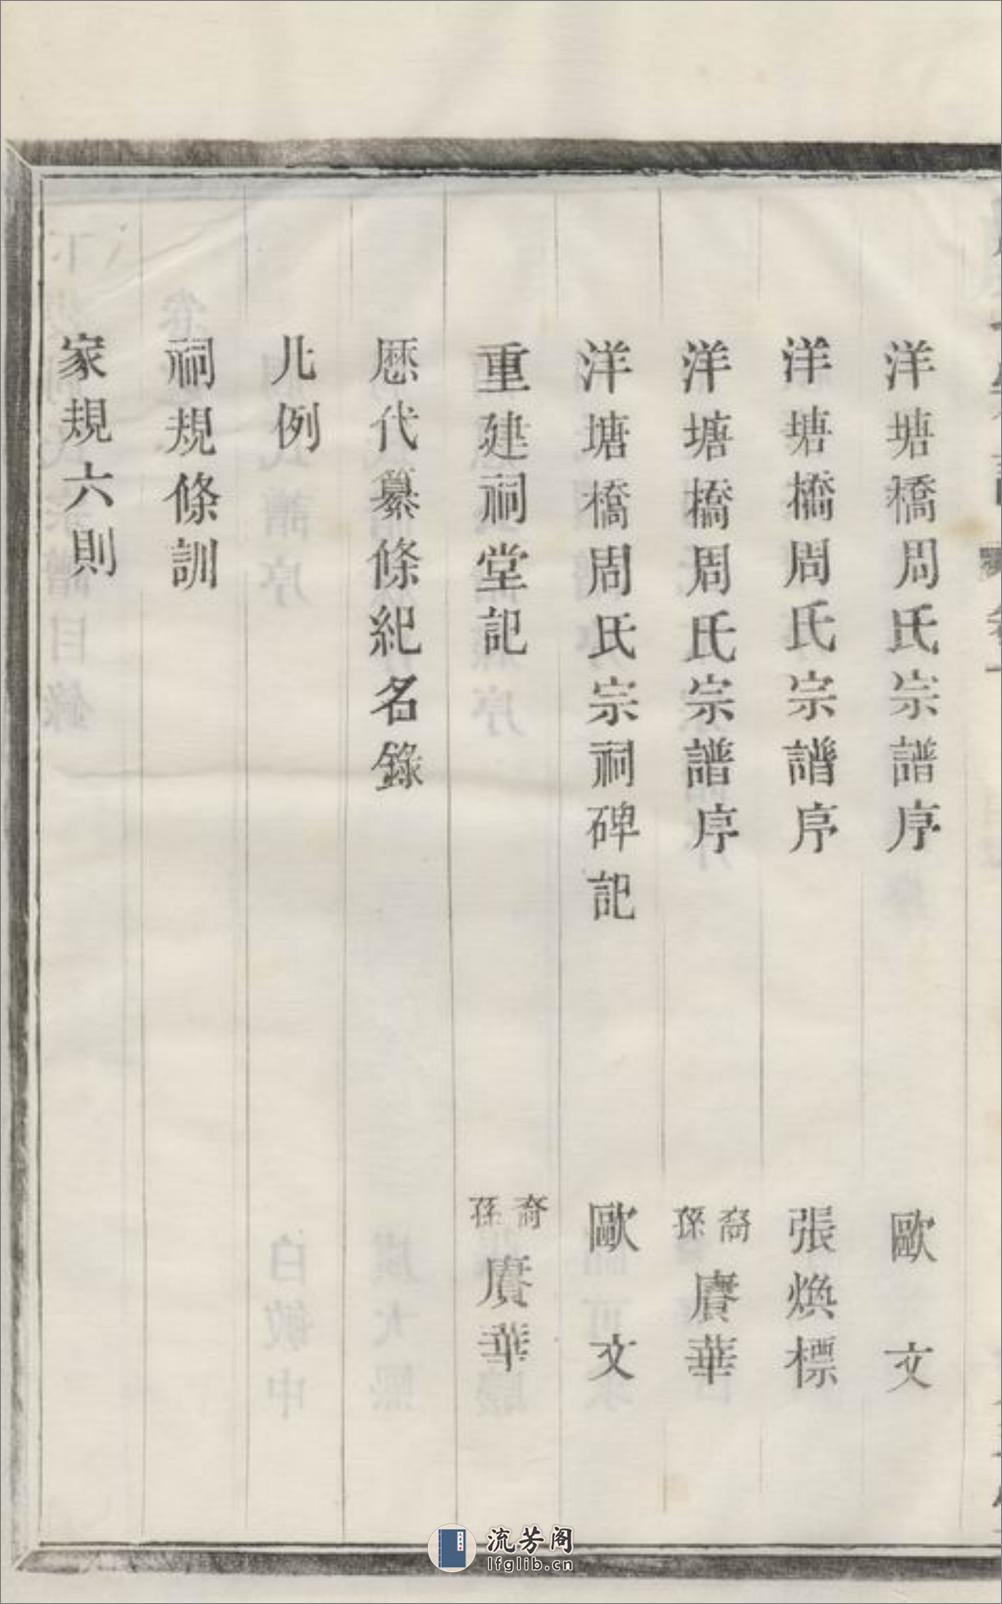 洋塘橋周氏宗譜序 歐文
洋塘橋周氏宗譜序 張煥標
洋塘橋周氏宗譜序 裔孫賡華
洋塘橋周氏宗祠碑記 歐文
重建祠堂記 裔孫賡華
歷代纂條紀名錄
凡例
祠規條訓
家規六則
流芳阁
lfglib.cn